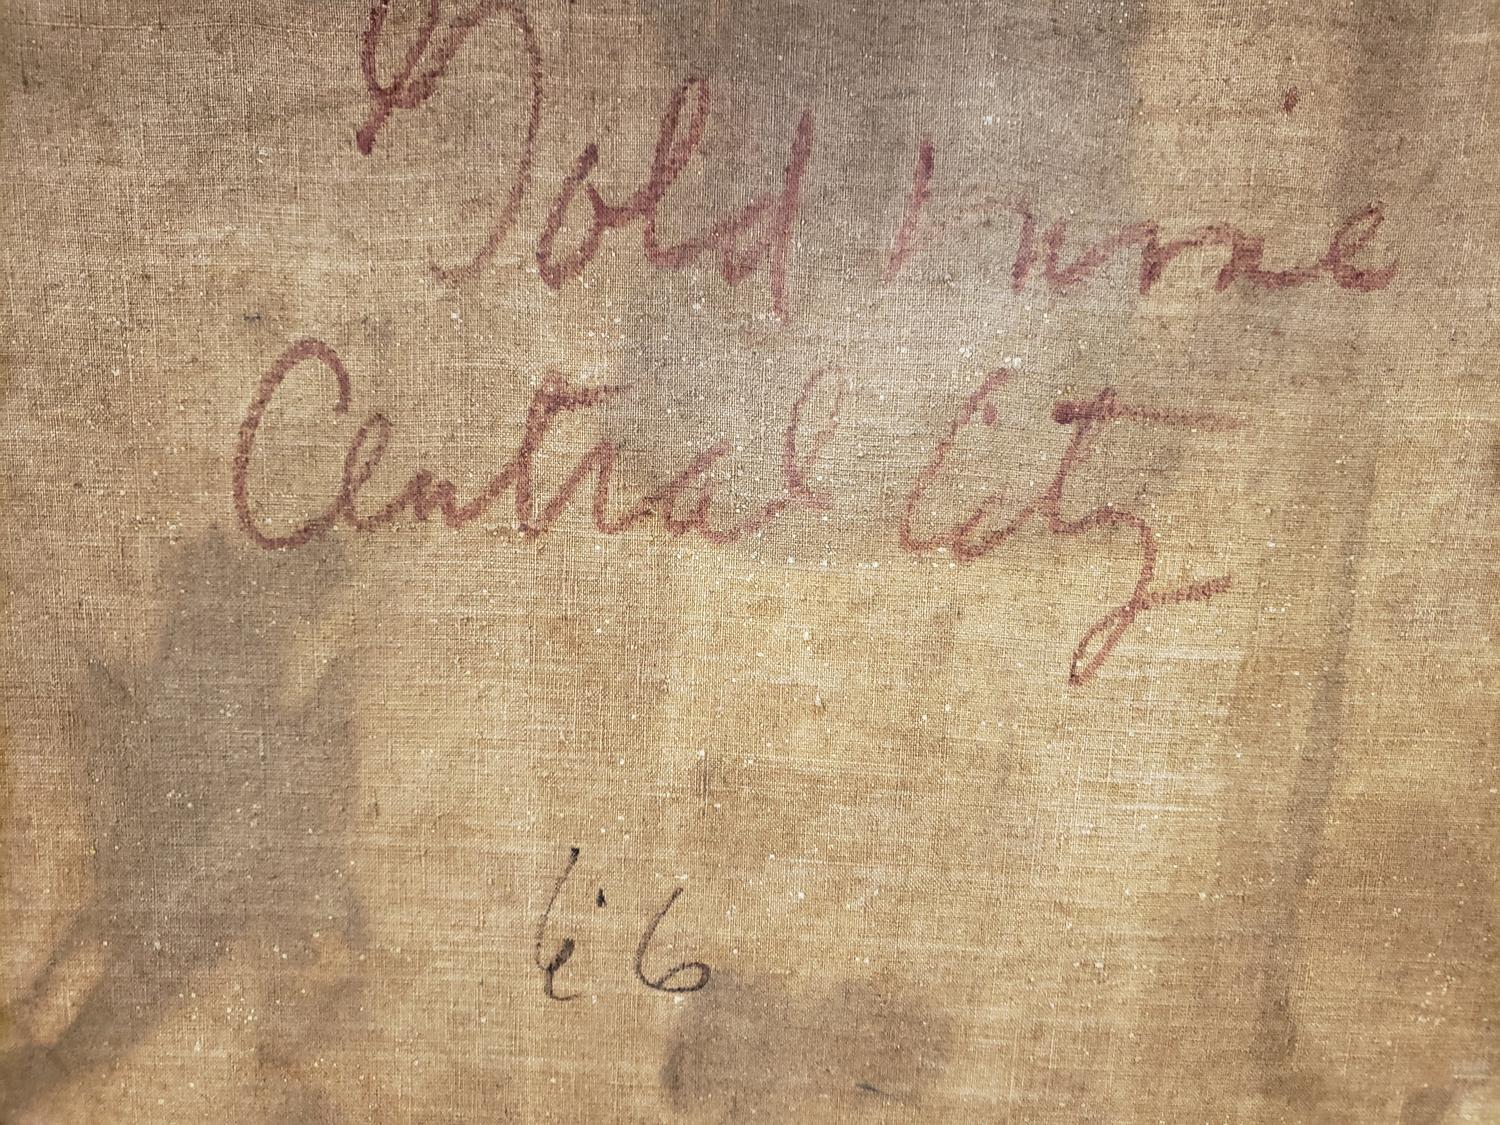 Gold Mine
Central City
66